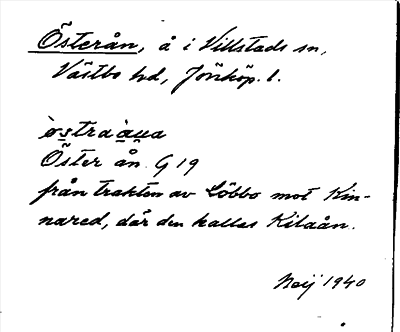 Österån, å i Villstads sn,
Västbo hd, Jönköp. l.
òstraàua
Öster ån. G 19
från trakten av Löbbo mot Kin-
nared, där den kallas Kilaån.
Neij 1940